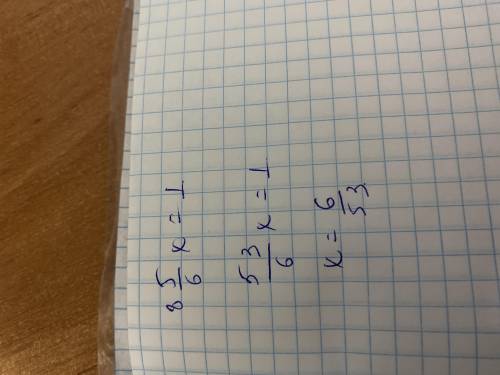 8 5/6 x = 1
53/6 x = 1
x = 6/53